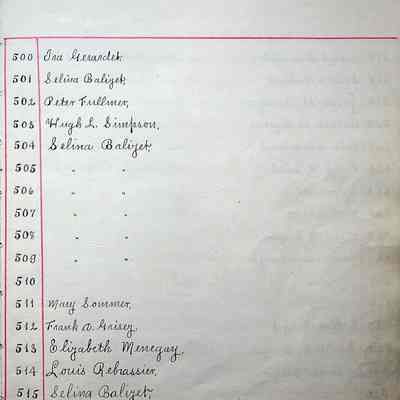 500 Ira Gerardet.
501 Selina Balizet.
502 Peter Fullmer.
503 Hugh L. Simpson.
504 Selina Balizet.
505 " "
506 " "
507 " "
508 " "
509 " "
510
511 Mary Sommer.
512 Frank A. Grisez.
513 Elizabeth Menegay.
514 Louis Rebrassier.
515 Selina Balizet.